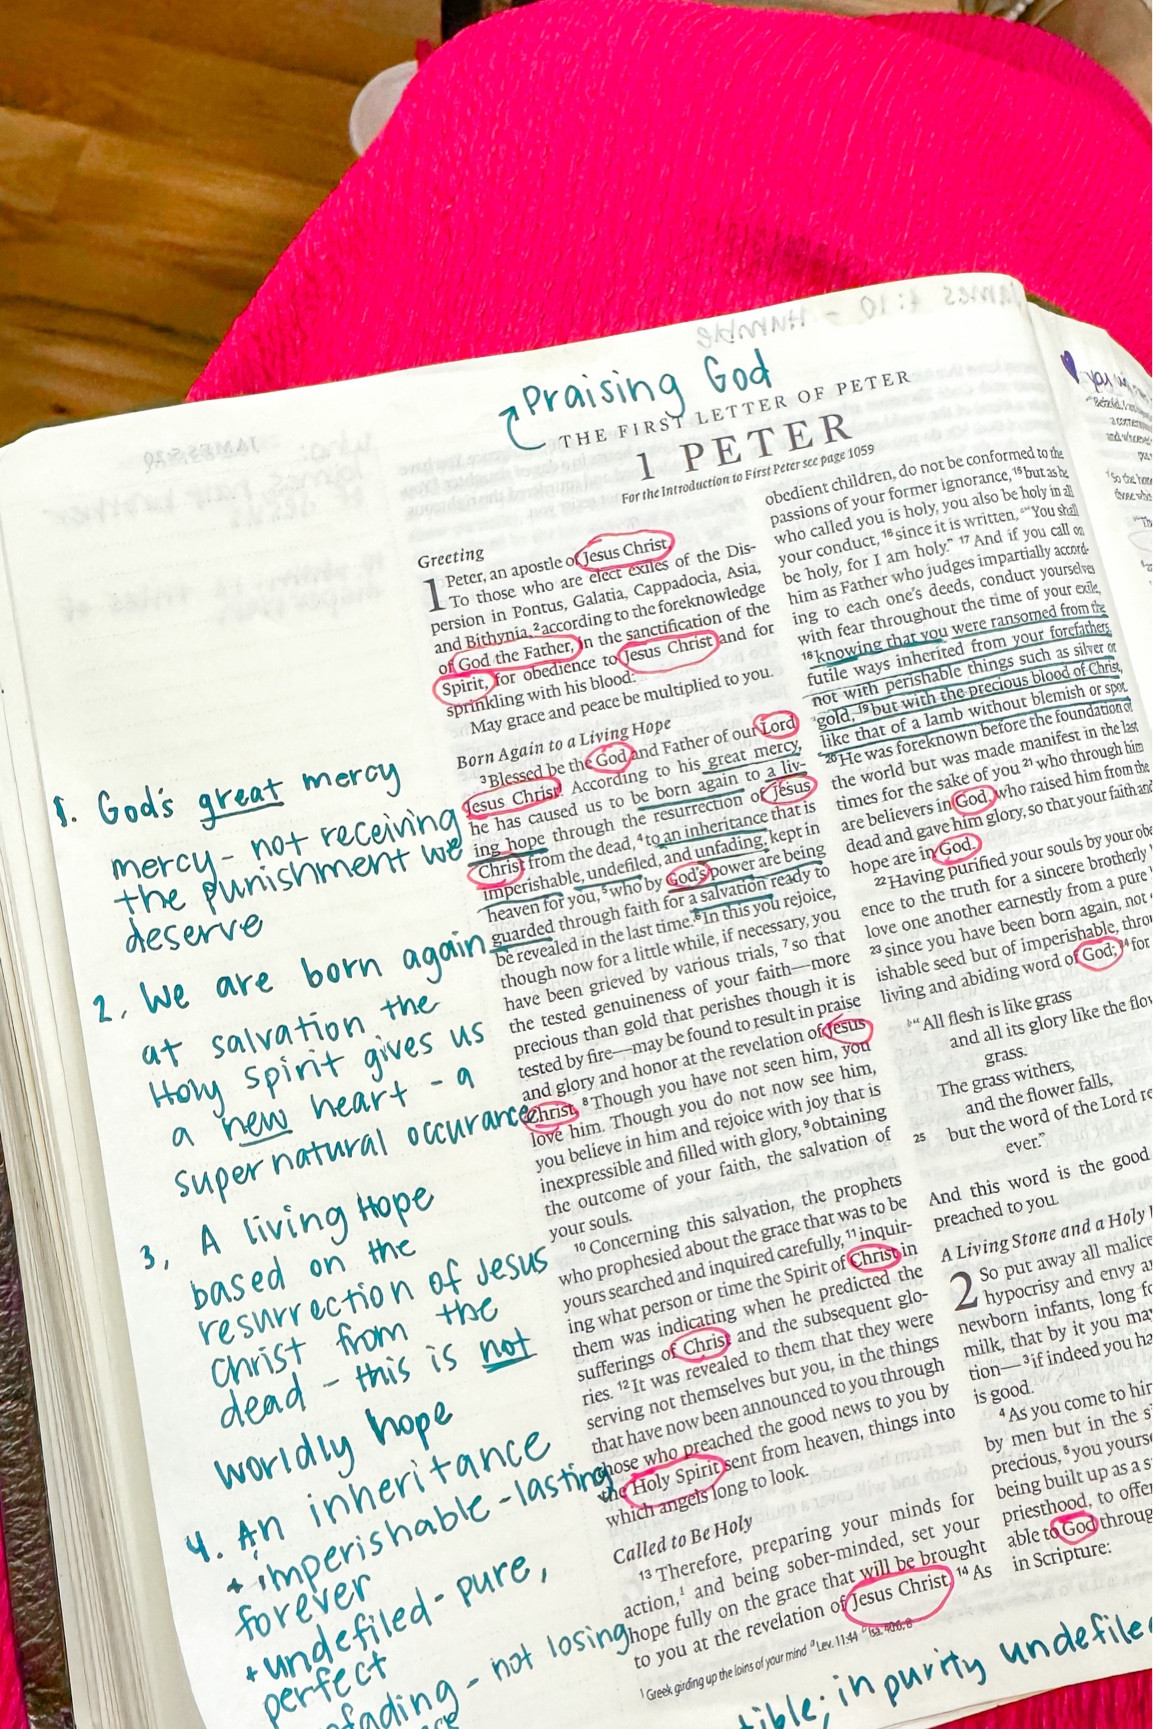 James 4:10 - Humble
Praising God
THE FIRST LETTER OF PETER
1 PETER
For the Introduction to First Peter see page 1059
JAMES 5:20
Greeting
1 Peter, an apostle of Jesus Christ,
To those who are elect exiles of the Dis-
persion in Pontus, Galatia, Cappadocia, Asia,
and Bithynia, 2 according to the foreknowledge
of God the Father, in the sanctification of the
Spirit, for obedience to Jesus Christ and for
sprinkling with his blood:
May grace and peace be multiplied to you.
Born Again to a Living Hope
3 Blessed be the God and Father of our Lord
Jesus Christ! According to his great mercy,
he has caused us to be born again to a liv-
ing hope through the resurrection of Jesus
Christ from the dead, 4 to an inheritance that is
imperishable, undefiled, and unfading, kept in
heaven for you, 5 who by God's power are being
guarded through faith for a salvation ready to
be revealed in the last time. 6 In this you rejoice,
though now for a little while, if necessary, you
have been grieved by various trials, 7 so that
the tested genuineness of your faith—more
precious than gold that perishes though it is
tested by fire—may be found to result in praise
and glory and honor at the revelation of Jesus
Christ. 8 Though you have not seen him, you
love him. Though you do not now see him,
you believe in him and rejoice with joy that is
inexpressible and filled with glory, 9 obtaining
the outcome of your faith, the salvation of
your souls.
10 Concerning this salvation, the prophets
who prophesied about the grace that was to be
yours searched and inquired carefully, 11 inquir-
ing what person or time the Spirit of Christ in
them was indicating when he predicted the
sufferings of Christ and the subsequent glo-
ries. 12 It was revealed to them that they were
serving not themselves but you, in the things
that have now been announced to you through
those who preached the good news to you by
the Holy Spirit sent from heaven, things into
which angels long to look.
Called to Be Holy
13 Therefore, preparing your minds for
action, 1 and being sober-minded, set your
hope fully on the grace that will be brought
to you at the revelation of Jesus Christ. 14 As
1 Greek girding up the loins of your mind Lev. 11:44 Isa. 40:6, 8
obedient children, do not be conformed to the
passions of your former ignorance, 15 but as he
who called you is holy, you also be holy in all
your conduct, 16 since it is written, "You shall
be holy, for I am holy." 17 And if you call on
him as Father who judges impartially accord-
ing to each one's deeds, conduct yourselves
with fear throughout the time of your exile,
18 knowing that you were ransomed from the
futile ways inherited from your forefathers,
not with perishable things such as silver or
gold, 19 but with the precious blood of Christ,
like that of a lamb without blemish or spot.
20 He was foreknown before the foundation of
the world but was made manifest in the last
times for the sake of you 21 who through him
are believers in God, who raised him from the
dead and gave him glory, so that your faith and
hope are in God.
22 Having purified your souls by your obe
ence to the truth for a sincere brotherly
love one another earnestly from a pure
23 since you have been born again, not
ishable seed but of imperishable, thro
living and abiding word of God; 24 for
"All flesh is like grass
and all its glory like the flo
grass.
The grass withers,
and the flower falls,
25 but the word of the Lord re
ever."
And this word is the good
preached to you.
A Living Stone and a Holy
2 So put away all malice
hypocrisy and envy a
newborn infants, long fo
milk, that by it you ma
tion—3 if indeed you ha
is good.
4 As you come to hi
by men but in the s
precious, 5 you yourse
being built up as a s
priesthood, to offer
able to God throug
in Scripture:
1. God's great mercy
mercy - not receiving
the punishment we
deserve
2. We are born again
at salvation the
Holy Spirit gives us
a new heart - a
supernatural occurance
3. A living Hope
based on the
resurrection of Jesus
Christ from the
dead - this is not
worldly hope
4. An inheritance
+ imperishable - lasting
forever
+ undefiled - pure,
perfect
fading - not losing
tible; in purity undefile